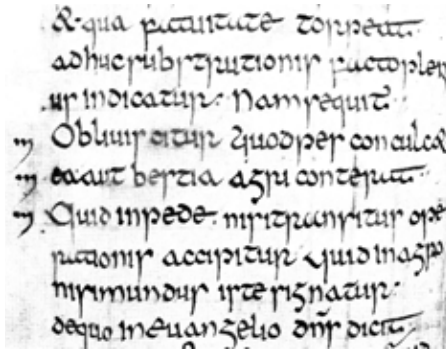 & qua fatuitate torpeat.
adhuc substrutionis facto plen
ius indicatur: Nam sequit̄.
Obliuiscitur quod pes conculc&
ea aut bestia agri conterat.
Quid in pede nisi transitus ope
rationis accipitur quid in agro
nisi mundus iste signatur:
de quo in euangelio dn̄s dicit